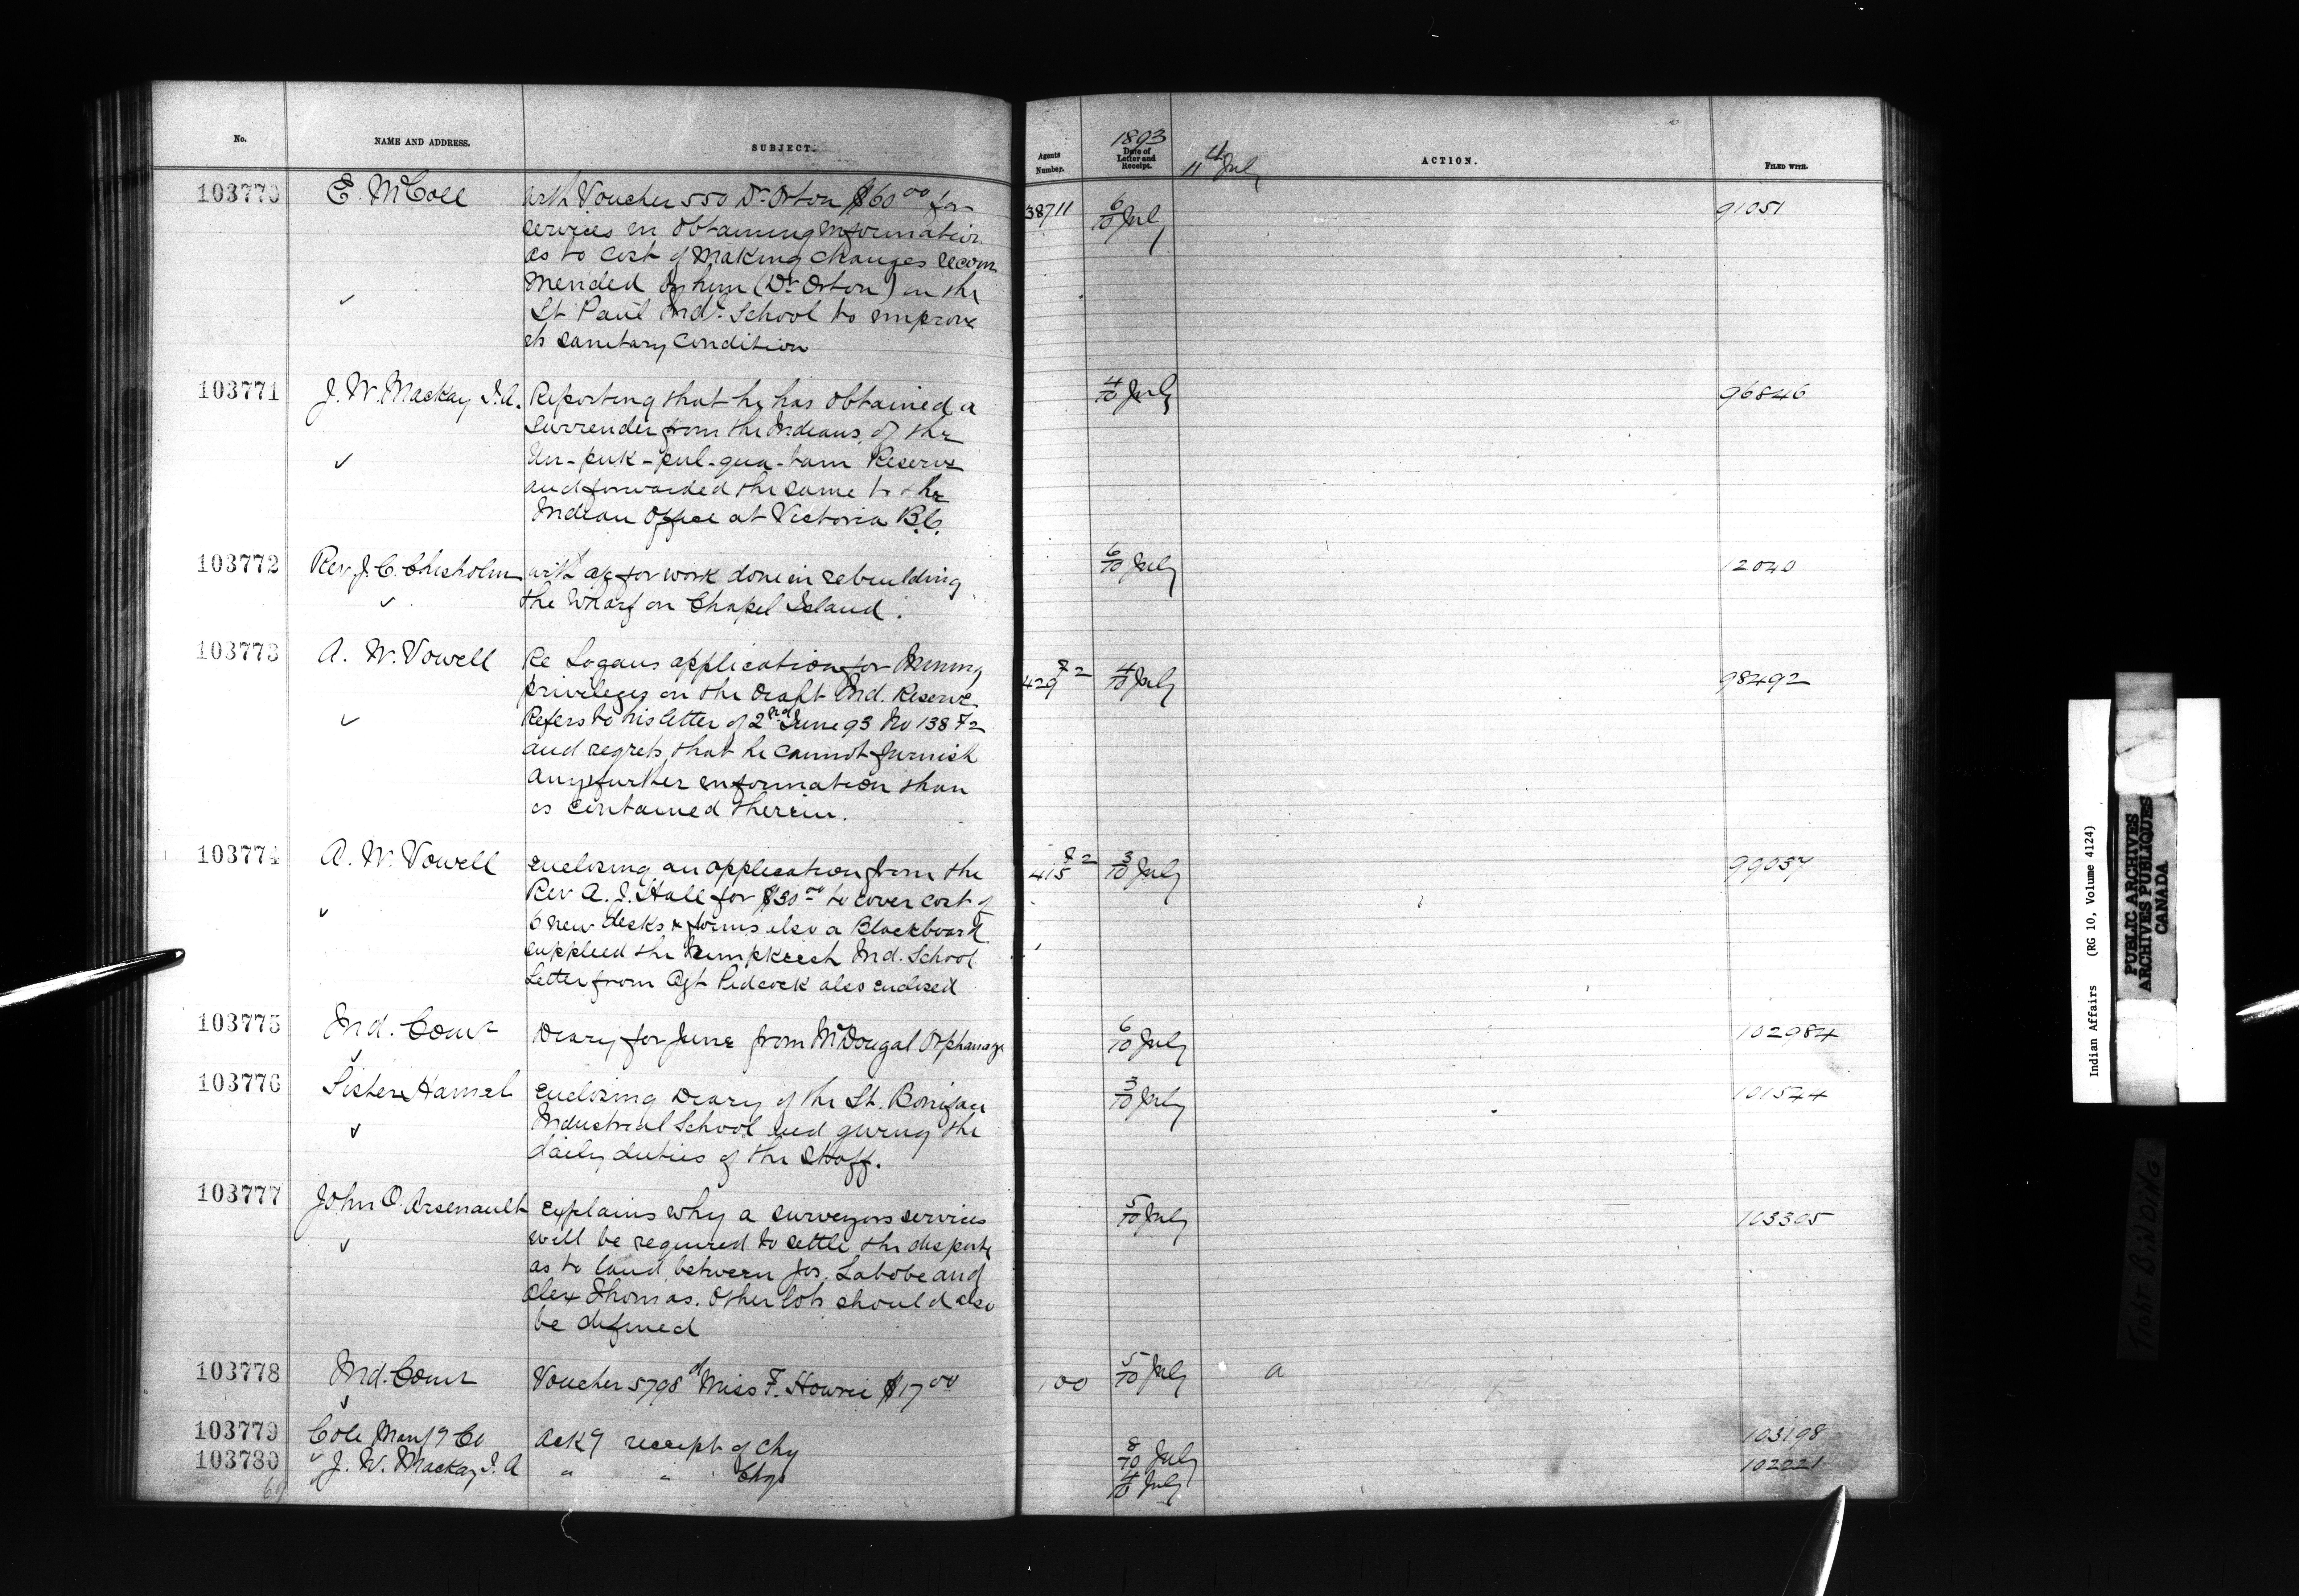 No. NAME AND ADDRESS. SUBJECT. Agents Number. 1893 Date of Letter and Receipt. 11th July ACTION. FILED WITH.
103770 E. McColl with Voucher 550 Dr Orton $60.00 for 38711 6/10 Jul 91051
services in obtaining information
as to cost of making changes recom
mended by him (Dr Orton) in the
St Paul Indl School to improve
its sanitary condition
103771 J. W. Mackay I.A. Reporting that he has obtained a 4/10 July 96846
surrender from the Indians of the
Un-puk-pul-qua-tum Reserve
and forwarded the same to the
Indian Office at Victoria B.C.
103772 Rev J. C. Chisholm with a/c for work done in rebuilding 6/10 July 12040
the Wharf on Chapel Island.
103773 A. W. Vowell Re Logans application for Mining 429 F2 4/10 July 98492
privileges on the Ind. Reserve
Refers to his letter of 2nd June 93 No 138 F2
and regrets that he cannot furnish
any further information than
is contained therein.
103774 A. W. Vowell enclosing an application from the 415 F2 3/10 July 99037
Rev A. J. Hall for $30.00 to cover cost of
6 new desks & forms also a Blackboard
supplied the Ind. School
Letter from Agt Pidcock also enclosed
103775 Ind. Comr Diary for June from McDougal Orphanage 6/10 July 102984
103776 Sister Hamel enclosing Diary of the St. Boniface 3/10 July 101544
Industrial School and giving the
daily duties of the staff.
103777 John O. Arsenault explains why a surveyors services 5/10 July 103305
will be required to settle the dispute
as to land between Jos. Labobe and
Alex Thomas. Other lots should also
be defined
103778 Ind. Comr Voucher 5798 of Miss F. Howrie $17.00 100 5/10 July a
103779 Cole Manfg Co Ackg receipt of Chq 8/10 July 103198
103780 J. W. Mackay I. A " " Chqs 4/10 July 102221
Indian Affairs (RG 10, Volume 4124)
PUBLIC ARCHIVES
ARCHIVES PUBLIQUES
CANADA
TIGHT BINDING